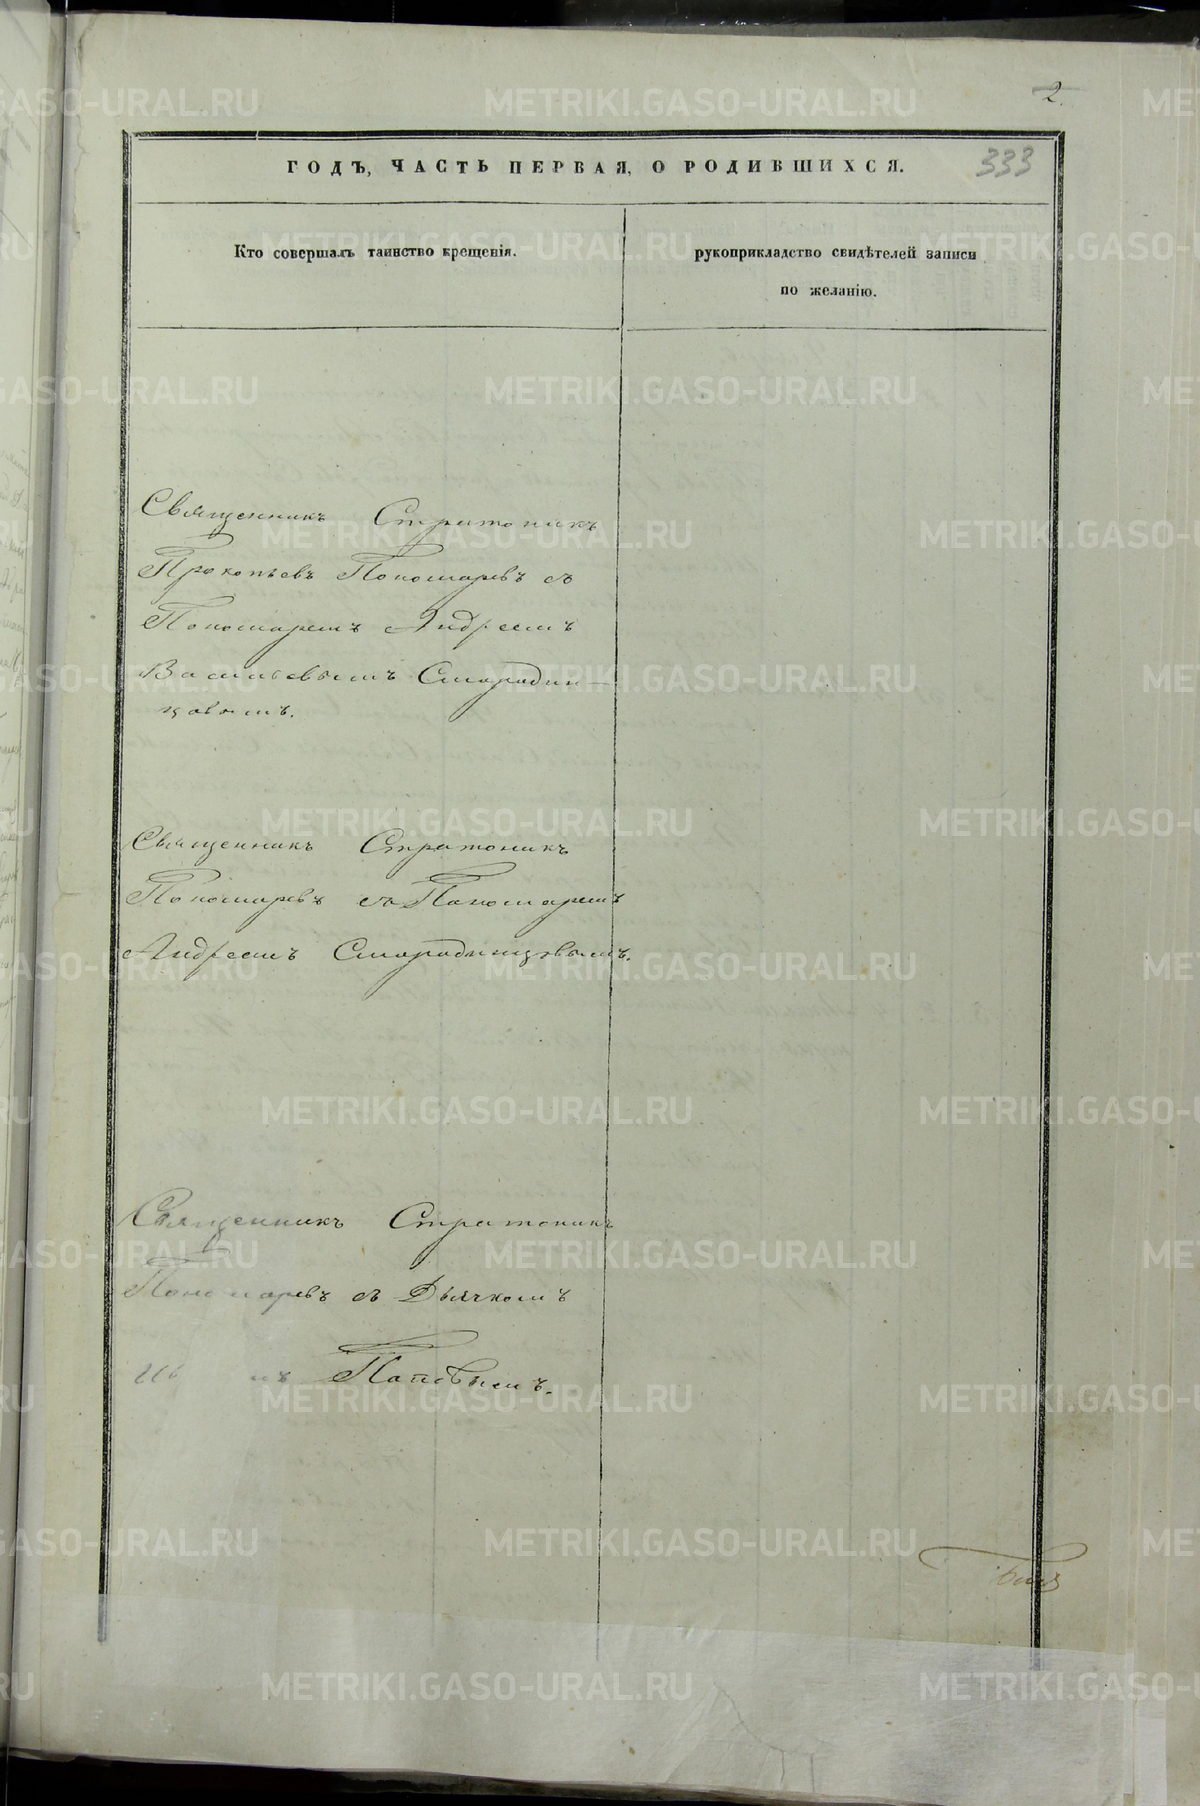 2.
ГОДЪ, ЧАСТЬ ПЕРВАЯ, О РОДИВШИХСЯ.
333
Кто совершалъ таинство крещенія.
рукоприкладство свидѣтелей записи
по желанію.
Священникъ Стратоникъ
Прокопьевъ Пономаревъ съ
Пономаремъ Андреемъ
Васильевымъ Смородин-
цовымъ.
Священникъ Стратоникъ
Пономаревъ съ Пономаремъ
Андреемъ Смородинцовымъ.
Священникъ Стратоникъ
Пономаревъ съ Дьячкомъ
Поповымъ.
METRIKI.GASO-URAL.RU